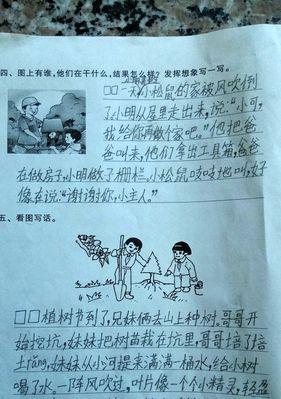 四、图上有谁,他们在干什么,结果怎么样?发挥想象写一写。
□□一天,小松鼠的家被风吹倒
了。小明从屋里走出来,说:“小可,
我给你再做个家吧。”他把爸
爸叫来,他们拿出工具箱,爸爸
在做房子,小明做了栅栏,小松鼠吱吱地叫,好
像在说:“谢谢你,小主人。”
五、看图写话。
□□植树节到了,兄妹俩去山上种树。哥哥开
始挖坑,妹妹把树苗栽在坑里,哥哥培了培
土rǎng,妹妹从小河提来满满一桶水,给小树
喝了水。一阵风吹过,叶片像一个个小精灵,轻盈